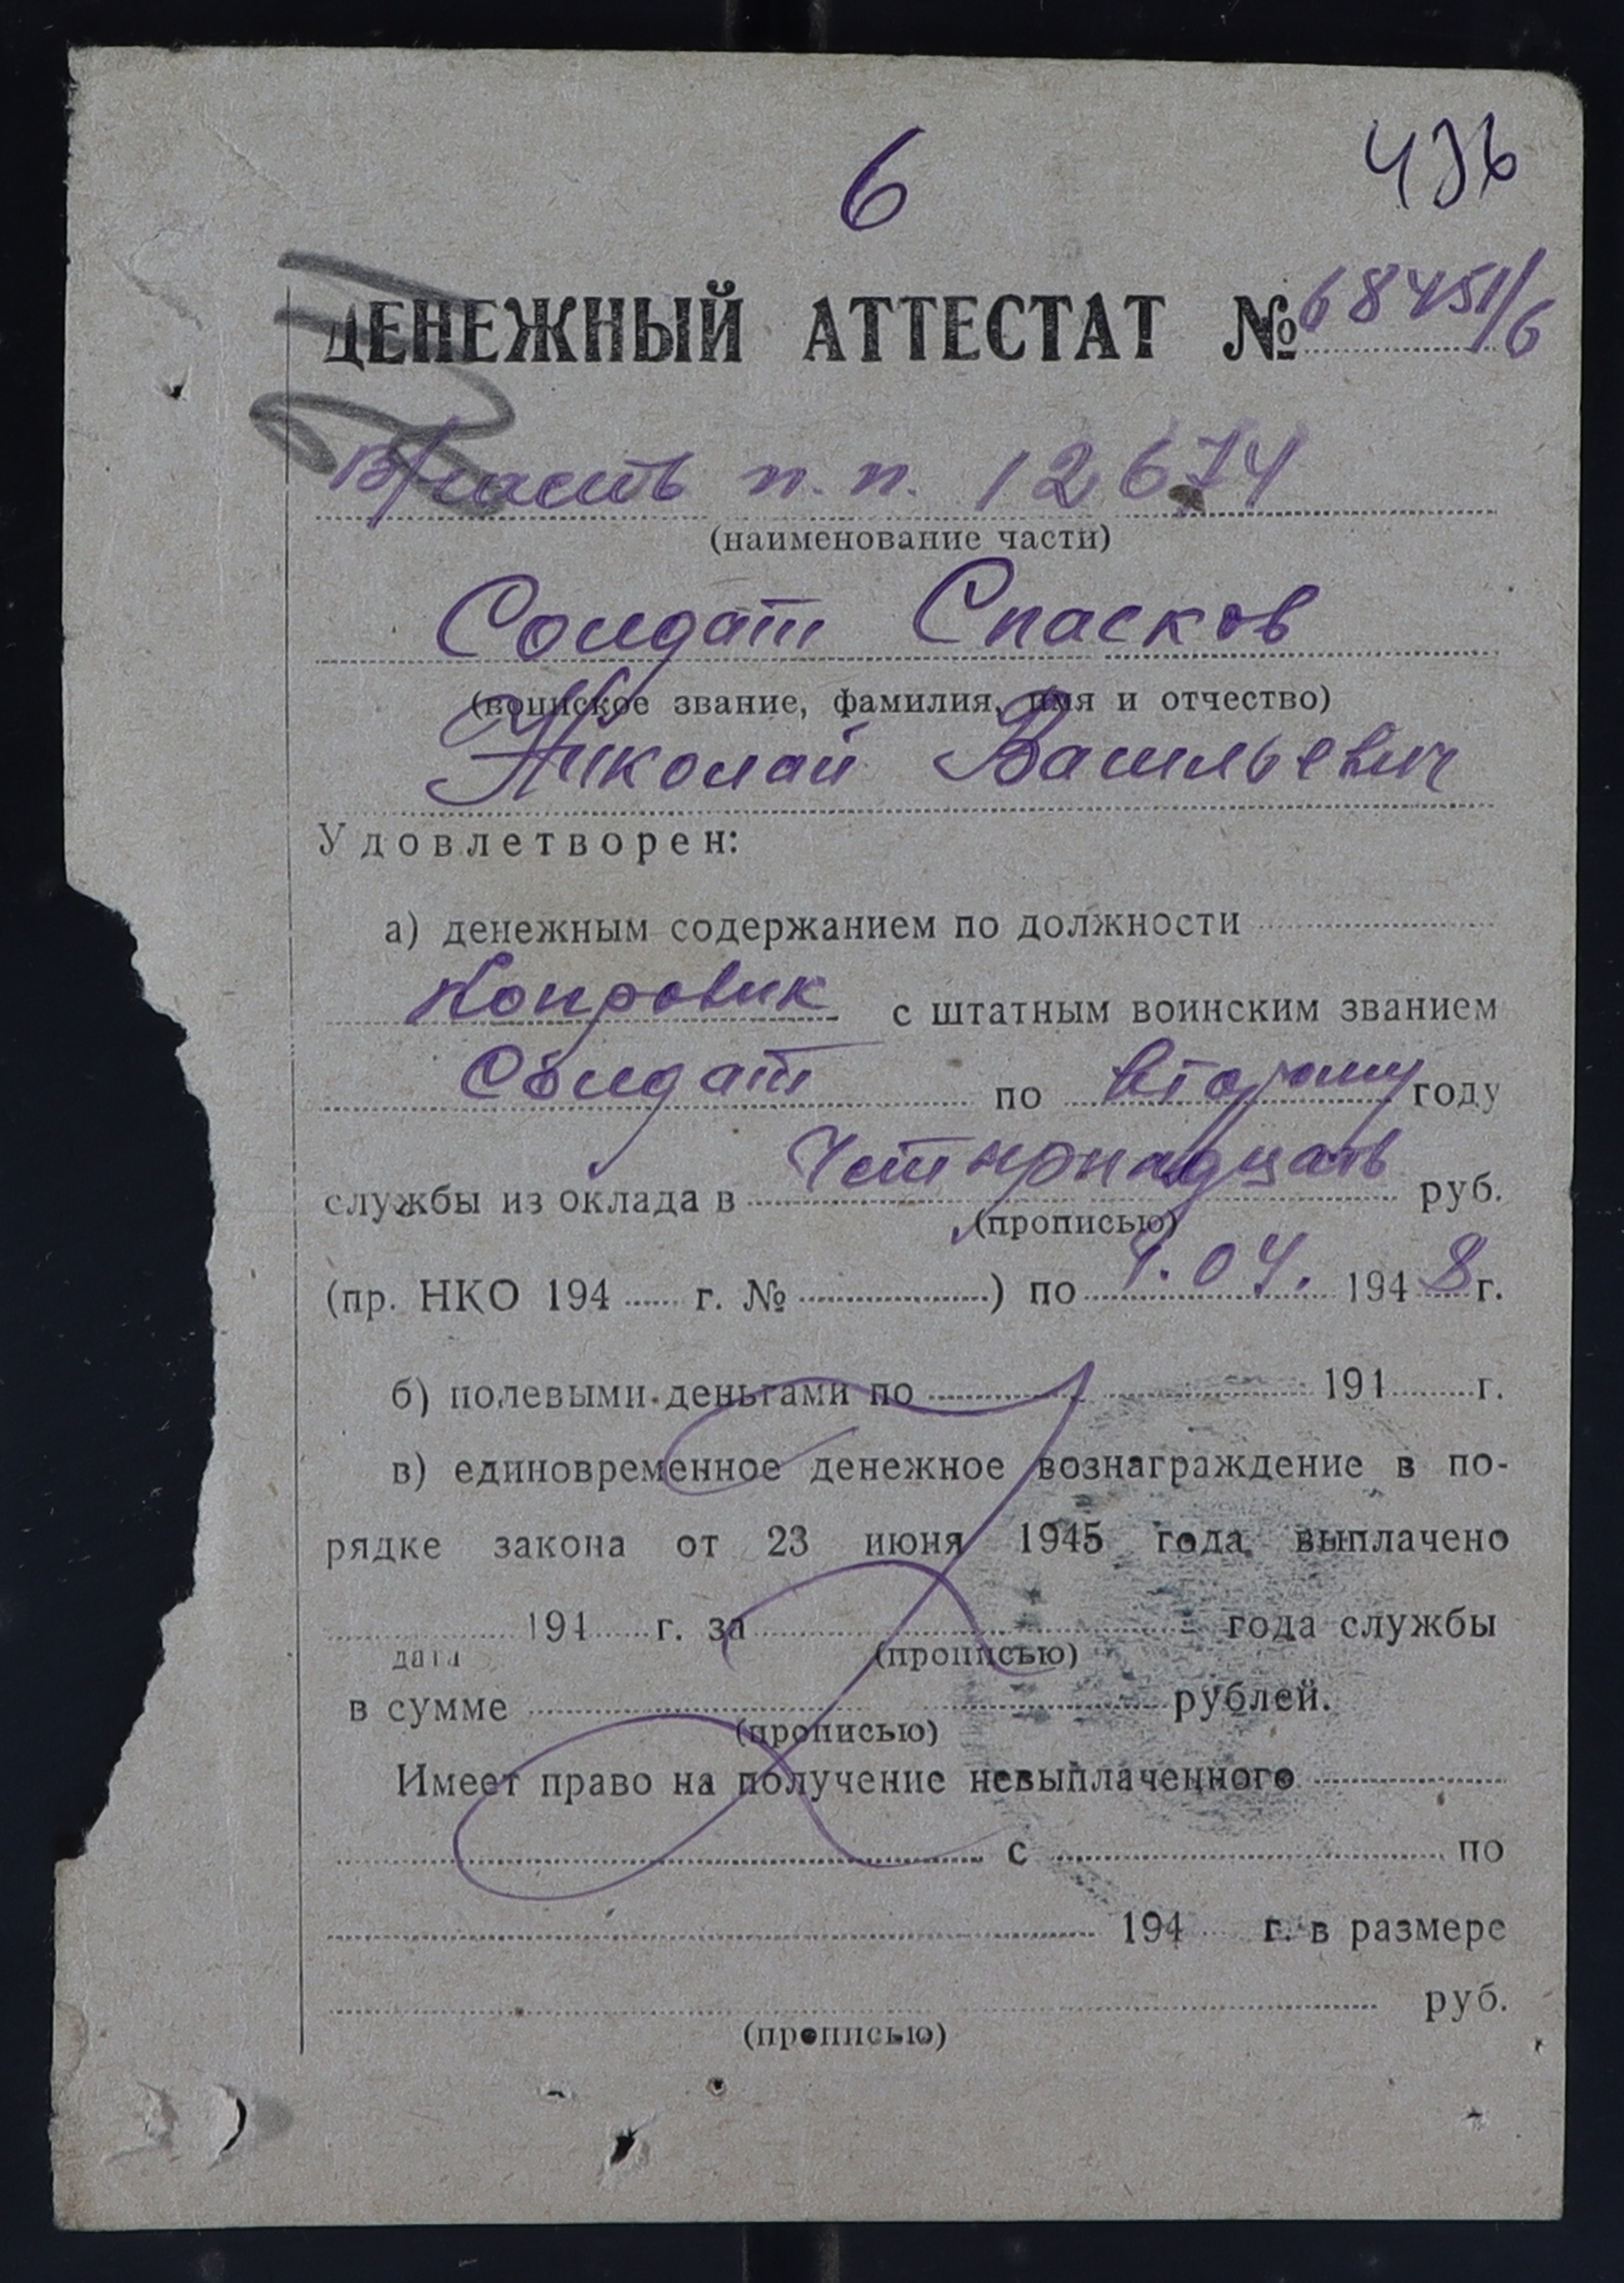 6
436
ДЕНЕЖНЫЙ АТТЕСТАТ № 68451/6
в/часть п.п. 12674
(наименование части)
Солдат Спасков
(воинское звание, фамилия, имя и отчество)
Николай Васильевич
Удовлетворен:
а) денежным содержанием по должности
Копровик с штатным воинским званием
Солдат по второму году
службы из оклада в Четырнадцать руб.
(прописью)
(пр. НКО 194 г. № ) по 1.04. 1948 г.
б) полевыми деньгами по 194 г.
в) единовременное денежное вознаграждение в по-
рядке закона от 23 июня 1945 года выплачено
194 г. за года службы
дата (прописью)
в сумме рублей.
(прописью)
Имеет право на получение невыплаченного
с по
194 г. в размере
руб.
(прописью)